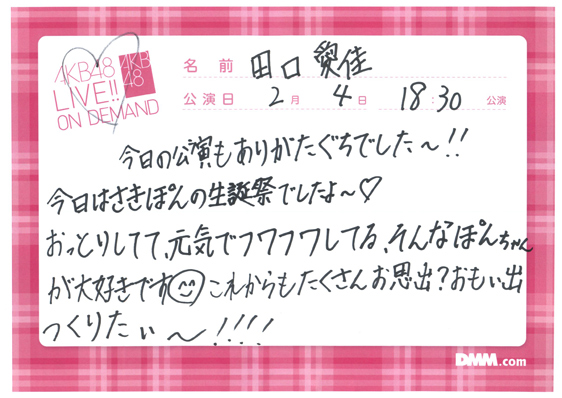 AKB48
LIVE!!
ON DEMAND
AKB
48
名前 田口愛佳
公演日 2月 4日 18:30 公演
今日の公演もありがたぐちでした〜!!
今日はさきぽんの生誕祭でしたよ〜♡
おっとりしてて、元気でフワフワしてる、そんなぽんちゃん
が大好きです これからもたくさんお思出?おもい出
つくりたぃ〜!!!!
DMM.com